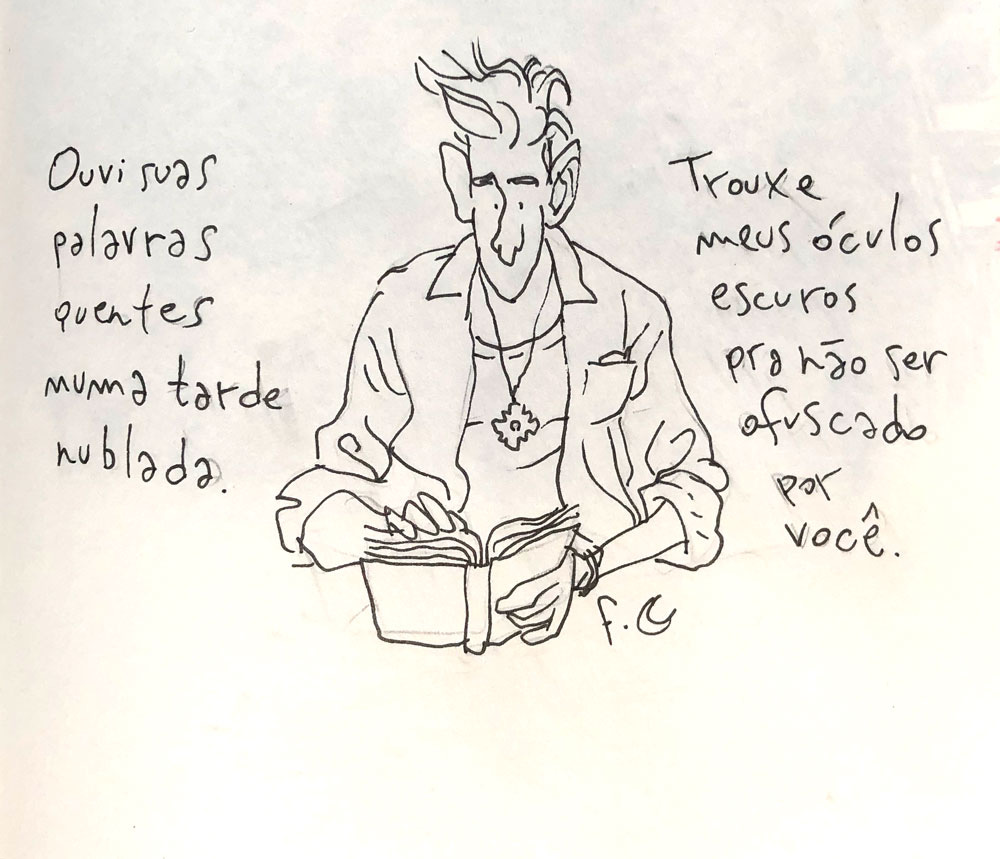 Ouvi suas
palavras
quentes
numa tarde
nublada.
Trouxe
meus óculos
escuros
pra não ser
ofuscado
por
você.
f.